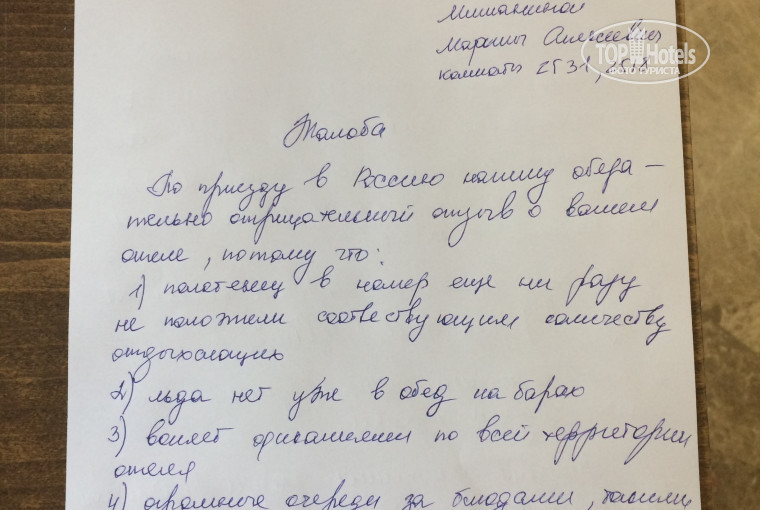 Марины Алексеевны
комнаты 2531,
TOP Hotels
ФОТО ТУРИСТА
Жалоба
По приезду в Россию напишу обяза-
тельно отрицательный отзыв о вашем
отеле, потому что:
1) полотенец в номер еще ни разу
не положили соотвествующим количеству
отдыхающих
2) льда нет уже в обед на барах
3) воняет фикалиями по всей территории
отеля
4) огромные очереди за блюдами,